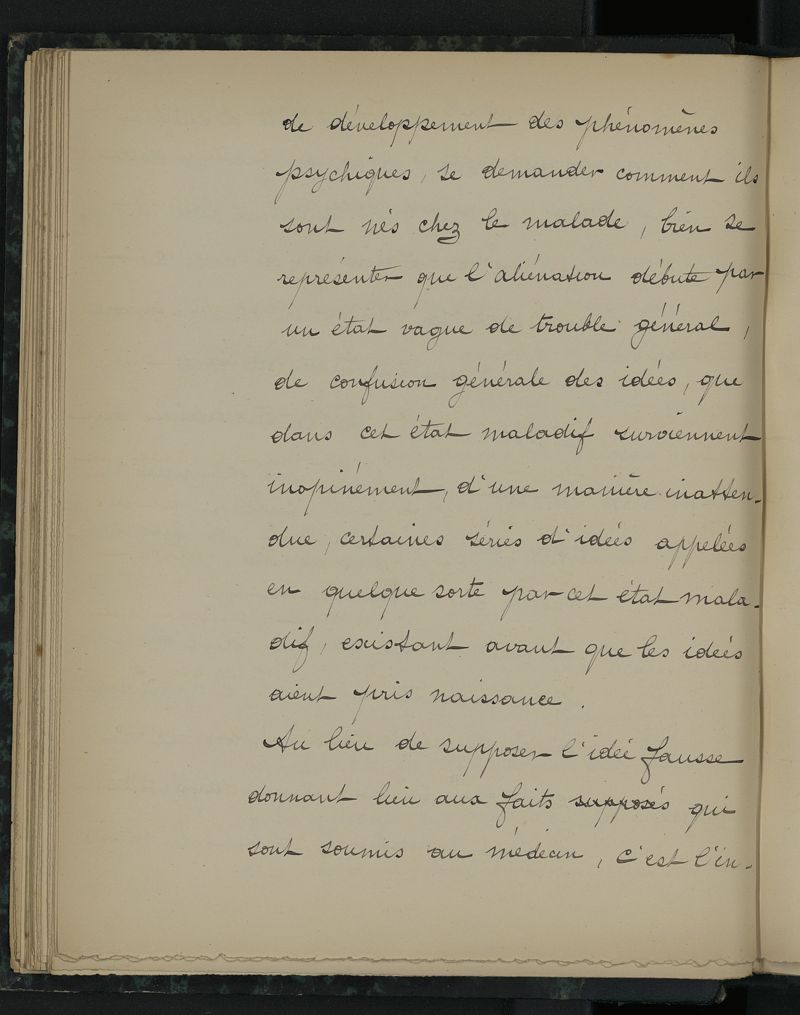 de développement des phénomènes
psychiques, se demander comment ils
sont nés chez le malade, bien se
représenter que l'aliénation débute par
un état vague de trouble général,
de confusion générale des idées, que
dans cet état maladif surviennent
inopinément, d'une manière inatten-
due, certaines séries d'idées appelées
en quelque sorte par cet état mala-
dif, existant avant que les idées
aient pris naissance.
Au lieu de supposer l'idée fausse
donnant lieu aux faits supposés qui
sont soumis au médecin, c'est l'in-